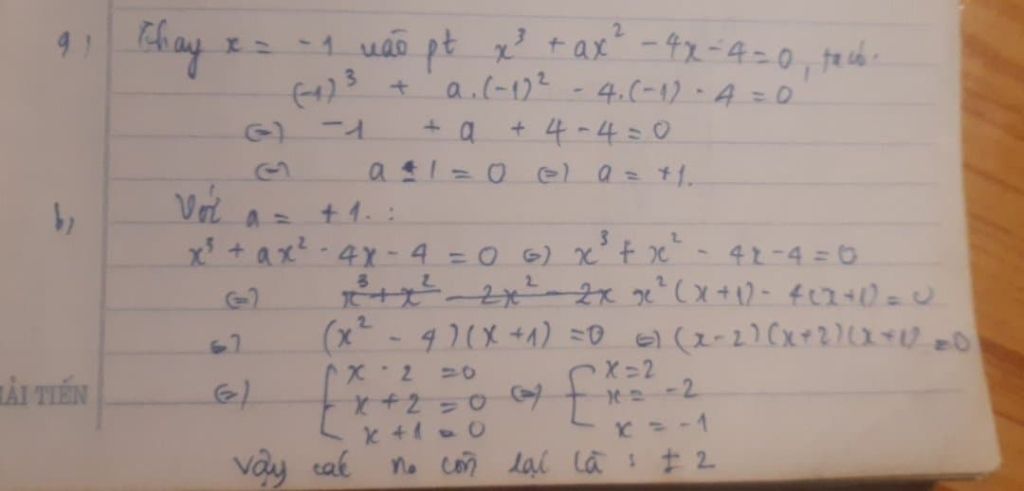 a, Thay x = -1 vào pt x³ + ax² - 4x - 4 = 0, ta có.
(-1)³ + a.(-1)² - 4.(-1) - 4 = 0
(=) -1 + a + 4 - 4 = 0
(=) a - 1 = 0 (=) a = +1.
b, Với a = +1. :
x³ + ax² - 4x - 4 = 0 (=) x³ + x² - 4x - 4 = 0
(=) x³ + x² - 2x² - 2x x² (x+1) - 4(x+1) = 0
(=) (x² - 4)(x + 1) = 0 (=) (x-2)(x+2)(x+1) = 0
(=) [ x - 2 = 0 (=) [ x = 2
x + 2 = 0 x = -2
x + 1 = 0 x = -1
Vậy các no còn lại là : ± 2
ẢI TIẾN